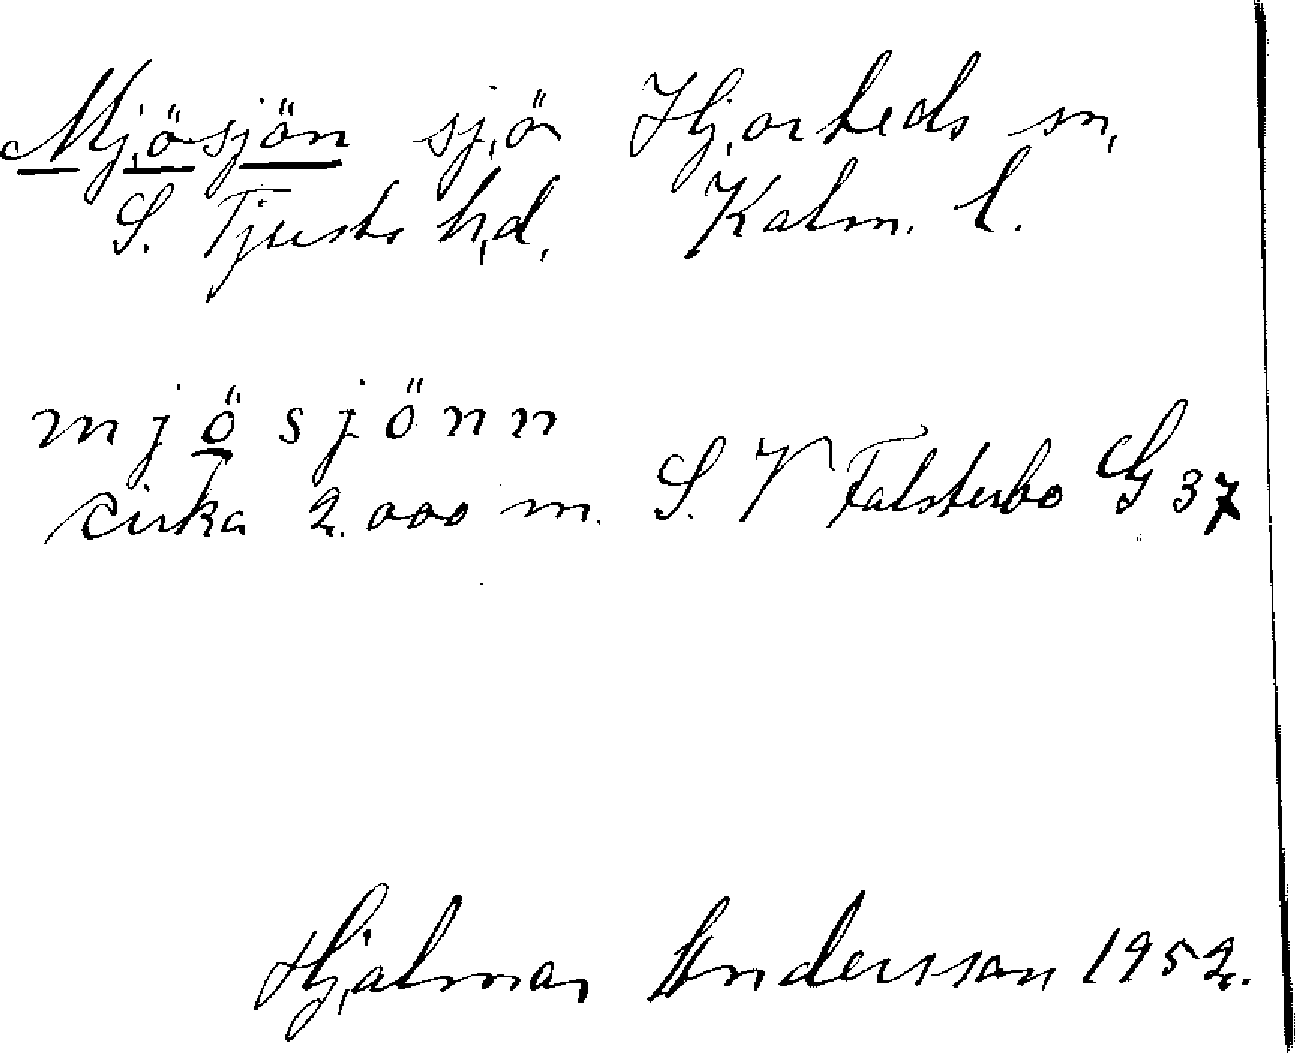 Mjösjön sjö Hjorteds sn,
S. Tjusts hd, Kalm. l.
mjösjönn
cirka 2.000 m. S. V Falsterbo G 37
Hjalmar Andersson 1952.